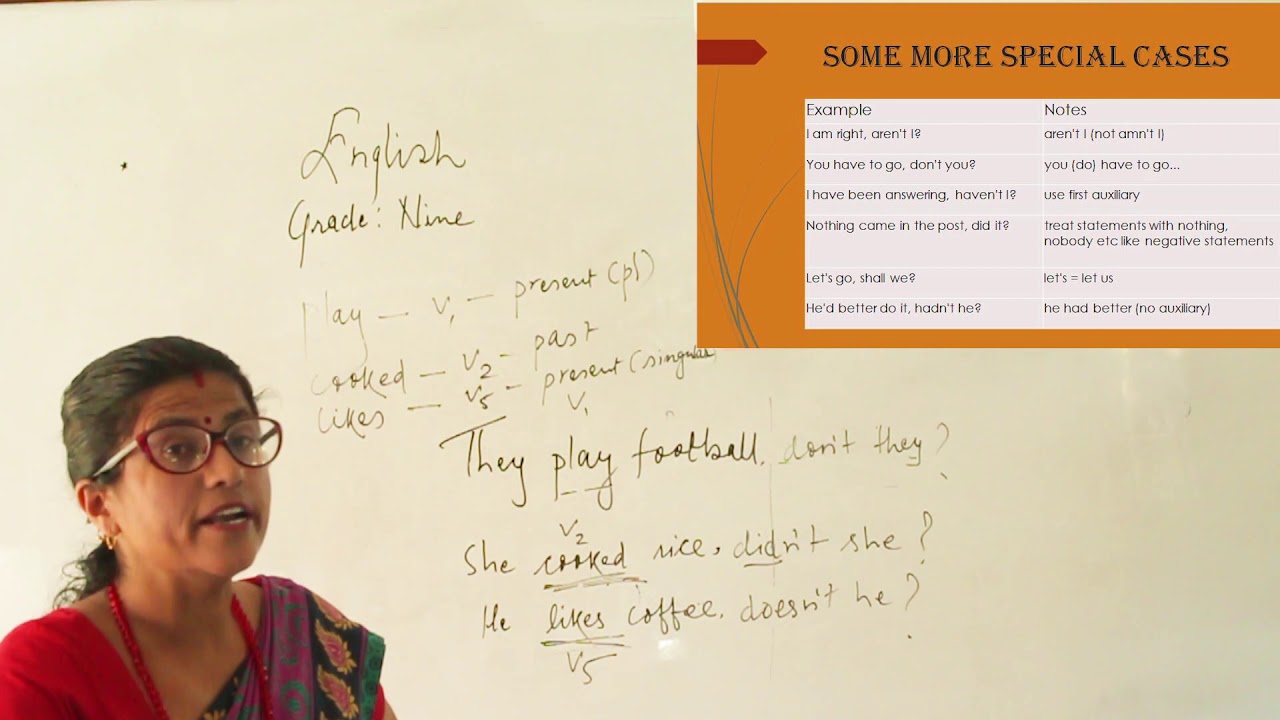 English
Grade: Nine
play — V1 — present (pl)
cooked — V2 - past
likes — V5 - present (singular)
V1
They play football, don't they?
V2
She cooked rice, didn't she?
He likes coffee, doesn't he?
V5
SOME MORE SPECIAL CASES
Example Notes
I am right, aren't I? aren't I (not amn't I)
You have to go, don't you? you (do) have to go...
I have been answering, haven't I? use first auxiliary
Nothing came in the post, did it? treat statements with nothing,
nobody etc like negative statements
Let's go, shall we? let's = let us
He'd better do it, hadn't he? he had better (no auxiliary)